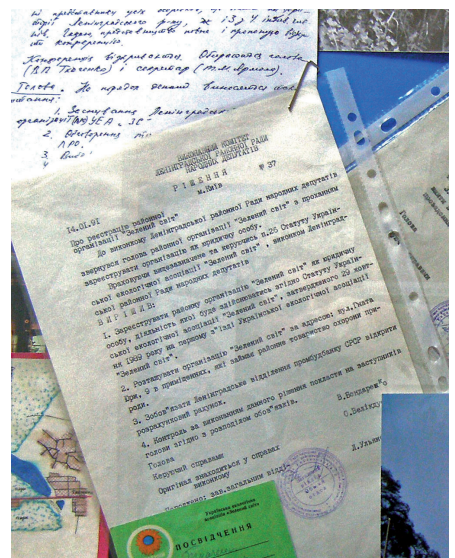 ні представники усіх
Ленінградського р-ну, ж
Гадаю, представництво повне і пропоную
ти конференцію.
Конференція відкривається. Обираються голова
(В.П. Ткаченко) і секретар
Голова. На порядок денний виносяться
питання:
1. Заснування Ленінградсь
організації УЕА „ЗС"
2. Обговорення
3.
ВИКОНАВЧИЙ КОМІТЕТ
ЛЕНІНГРАДСЬКОЇ РАЙОННОЇ РАДИ
НАРОДНИХ ДЕПУТАТІВ
Р І Ш Е Н Н Я № 37
м.Київ
14.01.91
Про реєстрацію районної
організації "Зелений світ"
До виконкому Ленінградської районної Ради народних депутатів
звернувся голова районної організації "Зелений світ" з проханням
зареєструвати організацію як юридичну особу.
Враховуючи вищезазначене та керуючись п.25 Статуту Україн-
ської екологічної асоціації "Зелений світ", виконком Ленінград-
ської районної Ради народних депутатів
В И Р І Ш И В:
1. Зареєструвати районну організацію "Зелений світ" як юридичну
особу, діяльність якої буде здійснюватись згідно Статуту Україн-
ської екологічної асоціації "Зелений світ", затвердженого 29 жовт-
ня 1989 року на першому з'їзді Української екологічної асоціації
"Зелений світ".
2. Розташувати організацію "Зелений світ" за адресою: вул.Гната
Юри, 9 в приміщеннях, які займає районне товариство охорони при-
роди.
3. Зобов'язати Ленінградське відділення промбудбанку СРСР відкрити
розрахунковий рахунок.
4. Контроль за виконанням даного рішення покласти на заступників
голови згідно з розподілом обов'язків.
Голова В.Бондаренко
Керуючий справами
Оригінал знаходиться у справах
виконкому
зав.загальним
Голова
Українська екологічна
асоціація «Зелений світ»
ПОСВІДЧЕННЯ